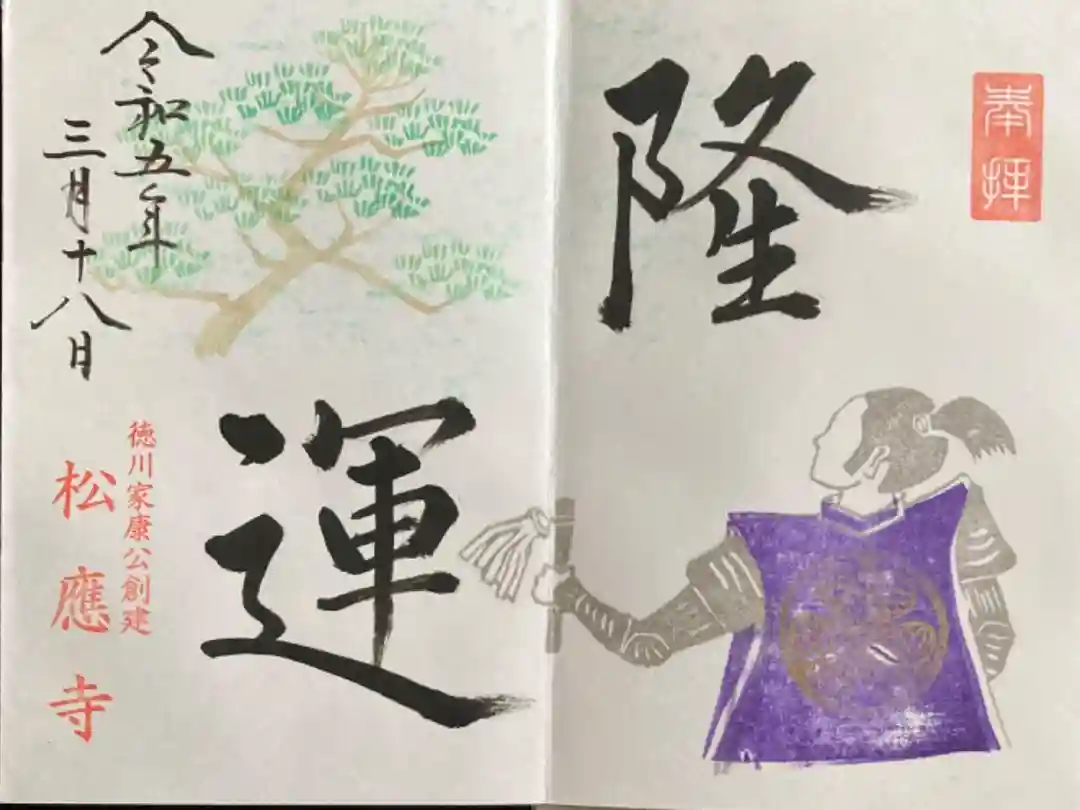 奉拝
隆
運
令和五年
三月十八日
徳川家康公創建
松應寺